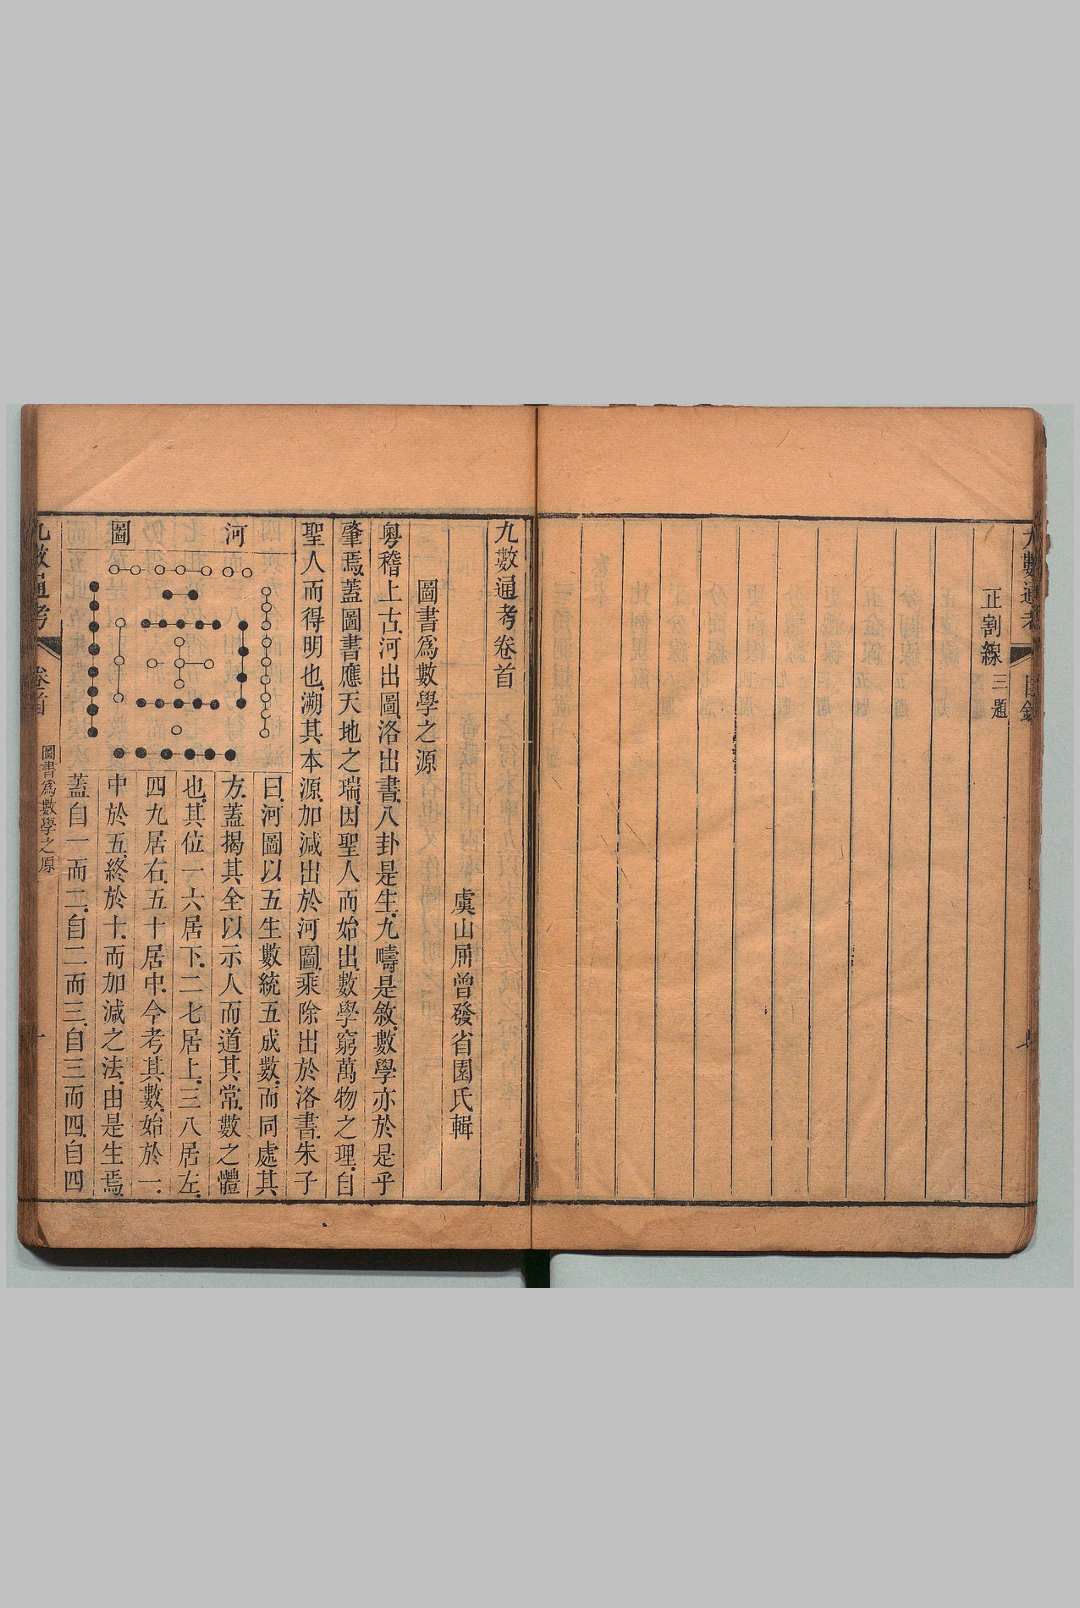 九數通考
目錄
正割線三題
九數通考卷首
圖書爲數學之源
虞山屈曾發省園氏輯
粵稽上古河出圖洛出書八卦是生九疇是敘數學亦於是乎
肇焉蓋圖書應天地之瑞因聖人而始出數學窮萬物之理自
聖人而得明也溯其本源加減出於河圖乘除出於洛書朱子
曰河圖以五生數統五成數而同處其
方蓋揭其全以示人而道其常數之體
也其位一六居下二七居上三八居左
四九居右五十居中今考其數始於一
中於五終於十而加減之法由是生焉
蓋自一而二自二而三自三而四自四
河圖
九數通考
卷首
圖書爲數學之原
一